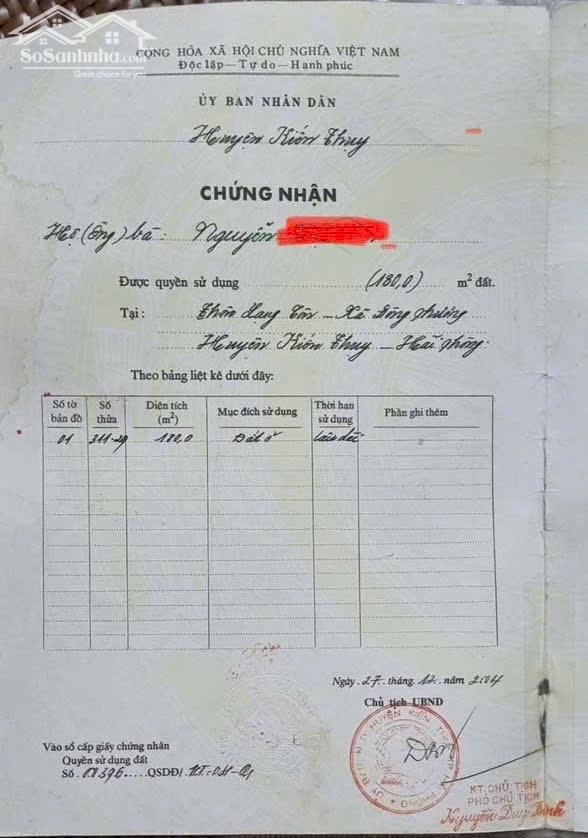 SoSanhnha.com
Great choice for you
CỘNG HÒA XÃ HỘI CHỦ NGHĨA VIỆT NAM
Độc lập — Tự do — Hạnh phúc
ỦY BAN NHÂN DÂN
Huyện Kiến Thụy
CHỨNG NHẬN
Hộ (Ông) bà: Nguyễn
Được quyền sử dụng (180,0) m² đất.
Tại: Thôn Lạng Côn - Xã Đông Phương
Huyện Kiến Thụy - Hải Phòng.
Theo bảng liệt kê dưới đây:
Số tờ bản đồ Số thửa Diện tích (m²) Mục đích sử dụng Thời hạn sử dụng Phần ghi thêm
01 311-29 180,0 Đất ở lâu dài
Ngày 27 tháng 12 năm 2004
Chủ tịch UBND
Vào sổ cấp giấy chứng nhận
Quyền sử dụng đất
Số QSDĐ/
KT. CHỦ TỊCH
PHÓ CHỦ TỊCH
Nguyễn Duy Bình